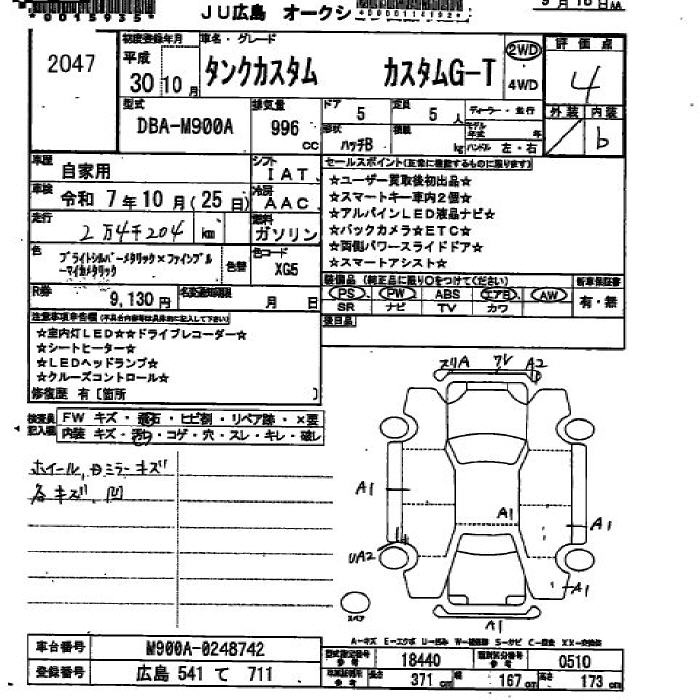 *00015935*
JU広島 オークシ
*0000011419２*
2047
初度登録年月
平成
30 10 月
車名・グレード
タンクカスタム カスタムG-T
2WD
4WD
評価点
4
外装 内装
b
型式
DBA-M900A
排気量
996 cc
ドア
5
定員
5 人
形状
ハッチB
積載
kg
ディーラー・並行
モデル年式 年
ハンドル 左・右
車歴
自家用
シフト
IAT
車検
令和 7年10月(25日)
冷房
AAC
走行
2万4千204 km
燃料
ガソリン
色
ブライトシルバーメタリック×ファインブルーマイカメタリック
色替
色コード
XG5
R券
9,130円
名変通知期限
月 日
セールスポイント(正常に機能するものに限ります)
☆ユーザー買取後初出品☆
☆スマートキー車内2個☆
☆アルパインLED液晶ナビ☆
☆バックカメラ☆ETC☆
☆両側パワースライドドア☆
☆スマートアシスト☆
装備品(純正品に限り○をつけてください)
PS PW ABS エアB AW
SR ナビ TV カワ
新車保証書
有・無
後日品
注意事項申告欄(不具合内容等は具体的に記入して下さい)
☆室内灯LED☆☆ドライブレコーダー☆
☆シートヒーター☆
☆LEDヘッドランプ☆
☆クルーズコントロール☆
修復歴 有〔箇所 〕
検査員記入欄
FW キズ・飛石・ヒビ割・リペア跡・×要
内装 キズ・汚れ・コゲ・穴・スレ・キレ・破レ
ホイール、ドミラーキズ
各キズ、凹
スリA ワレ A2
A1
A1
A1
UA2
A1
A1
スペア
A-キズ E-エクボ U-凹み W-補修跡 S-サビ C-腐食 XX-交換済
車台番号
M900A-0248742
登録番号
広島 541 て 711
型式指定番号
参考
18440
類別区分番号
参考
0510
長さ
371 cm
幅
167 cm
高さ
173 cm